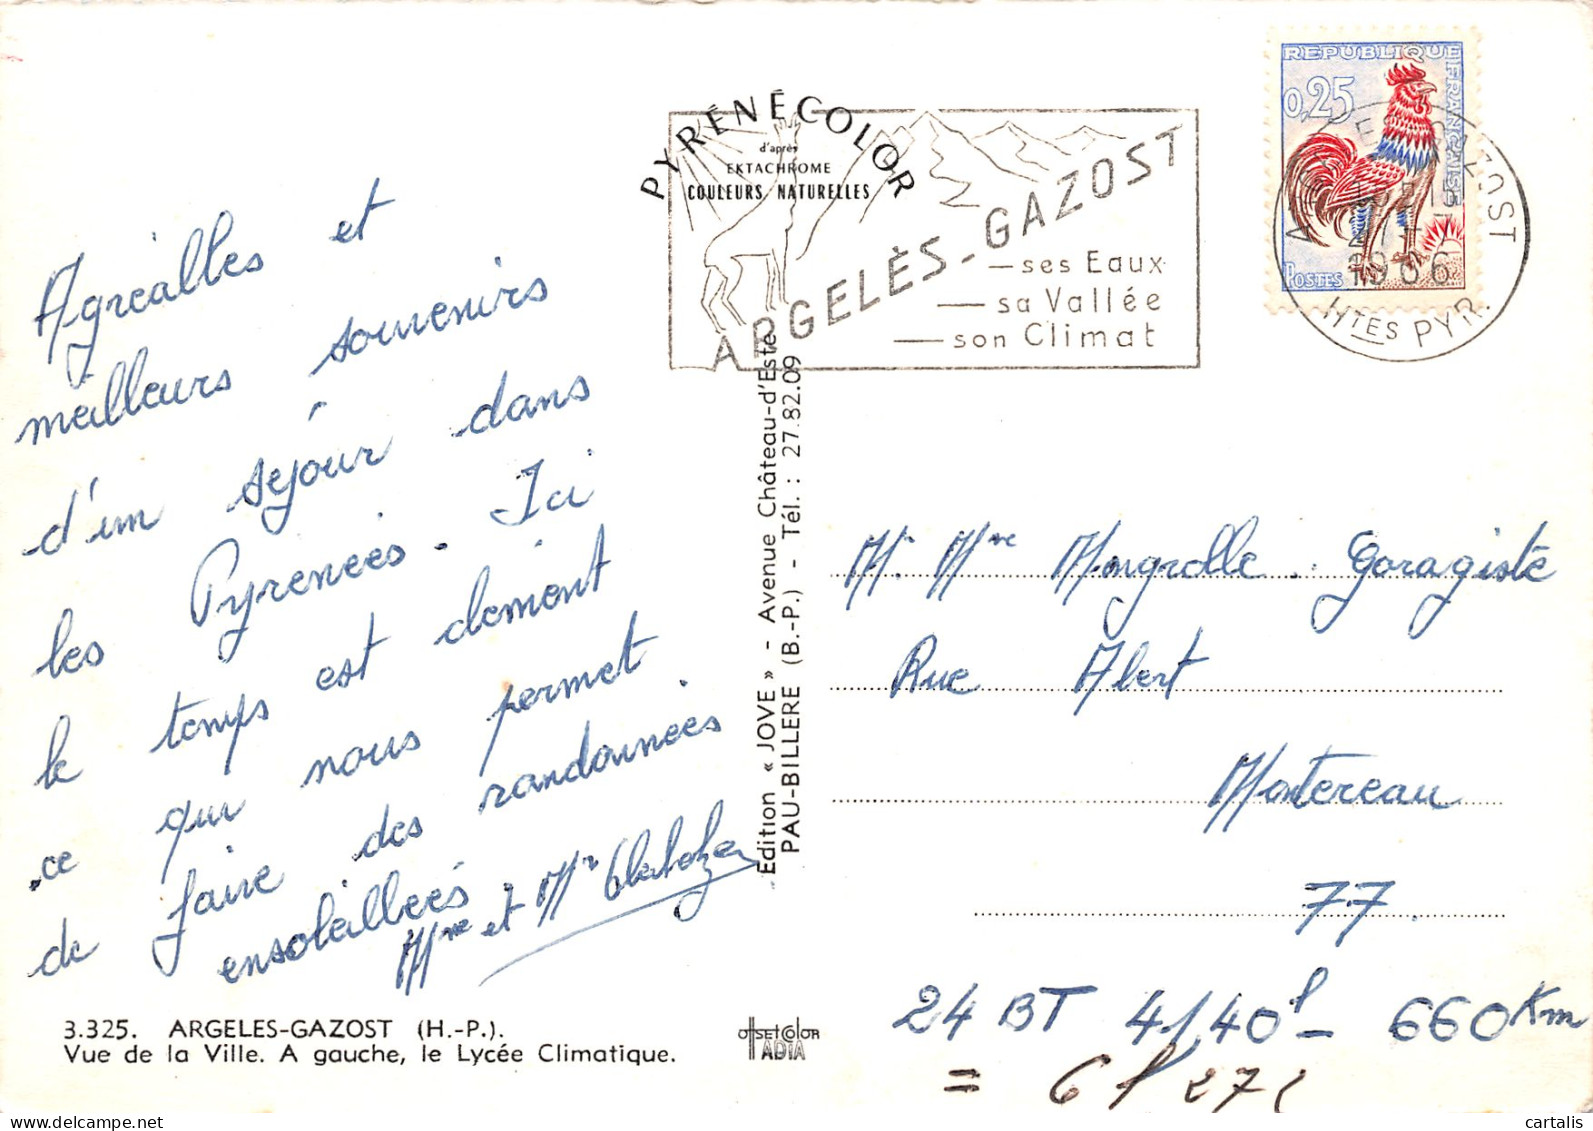 Agréables et
meilleurs souvenirs
d'un séjour dans
les Pyrénées. Ici
le temps est clément
ce qui nous permet
de faire des randonnées
ensoleillées.
Mme et Mr
3.325. ARGELES-GAZOST (H.-P.).
Vue de la Ville. A gauche, le Lycée Climatique.
PYRÉNÉCOLOR
d'après
EKTACHROME
COULEURS NATURELLES
ARGELÈS-GAZOST
— ses Eaux
— sa Vallée
— son Climat
Edition « JOVE » - Avenue Château-d'Este
PAU-BILLERE (B.-P.) - Tél. : 27.82.09
offset color
IADIA
REPUBLIQUE FRANÇAISE
0,25
POSTES
HTES PYR.
Mr. Mme Mongrolle. Garagiste
Rue Abert
Montereau
77.
24 BT 4140l - 660Km
= 6l 27
cartalis
www.delcampe.net